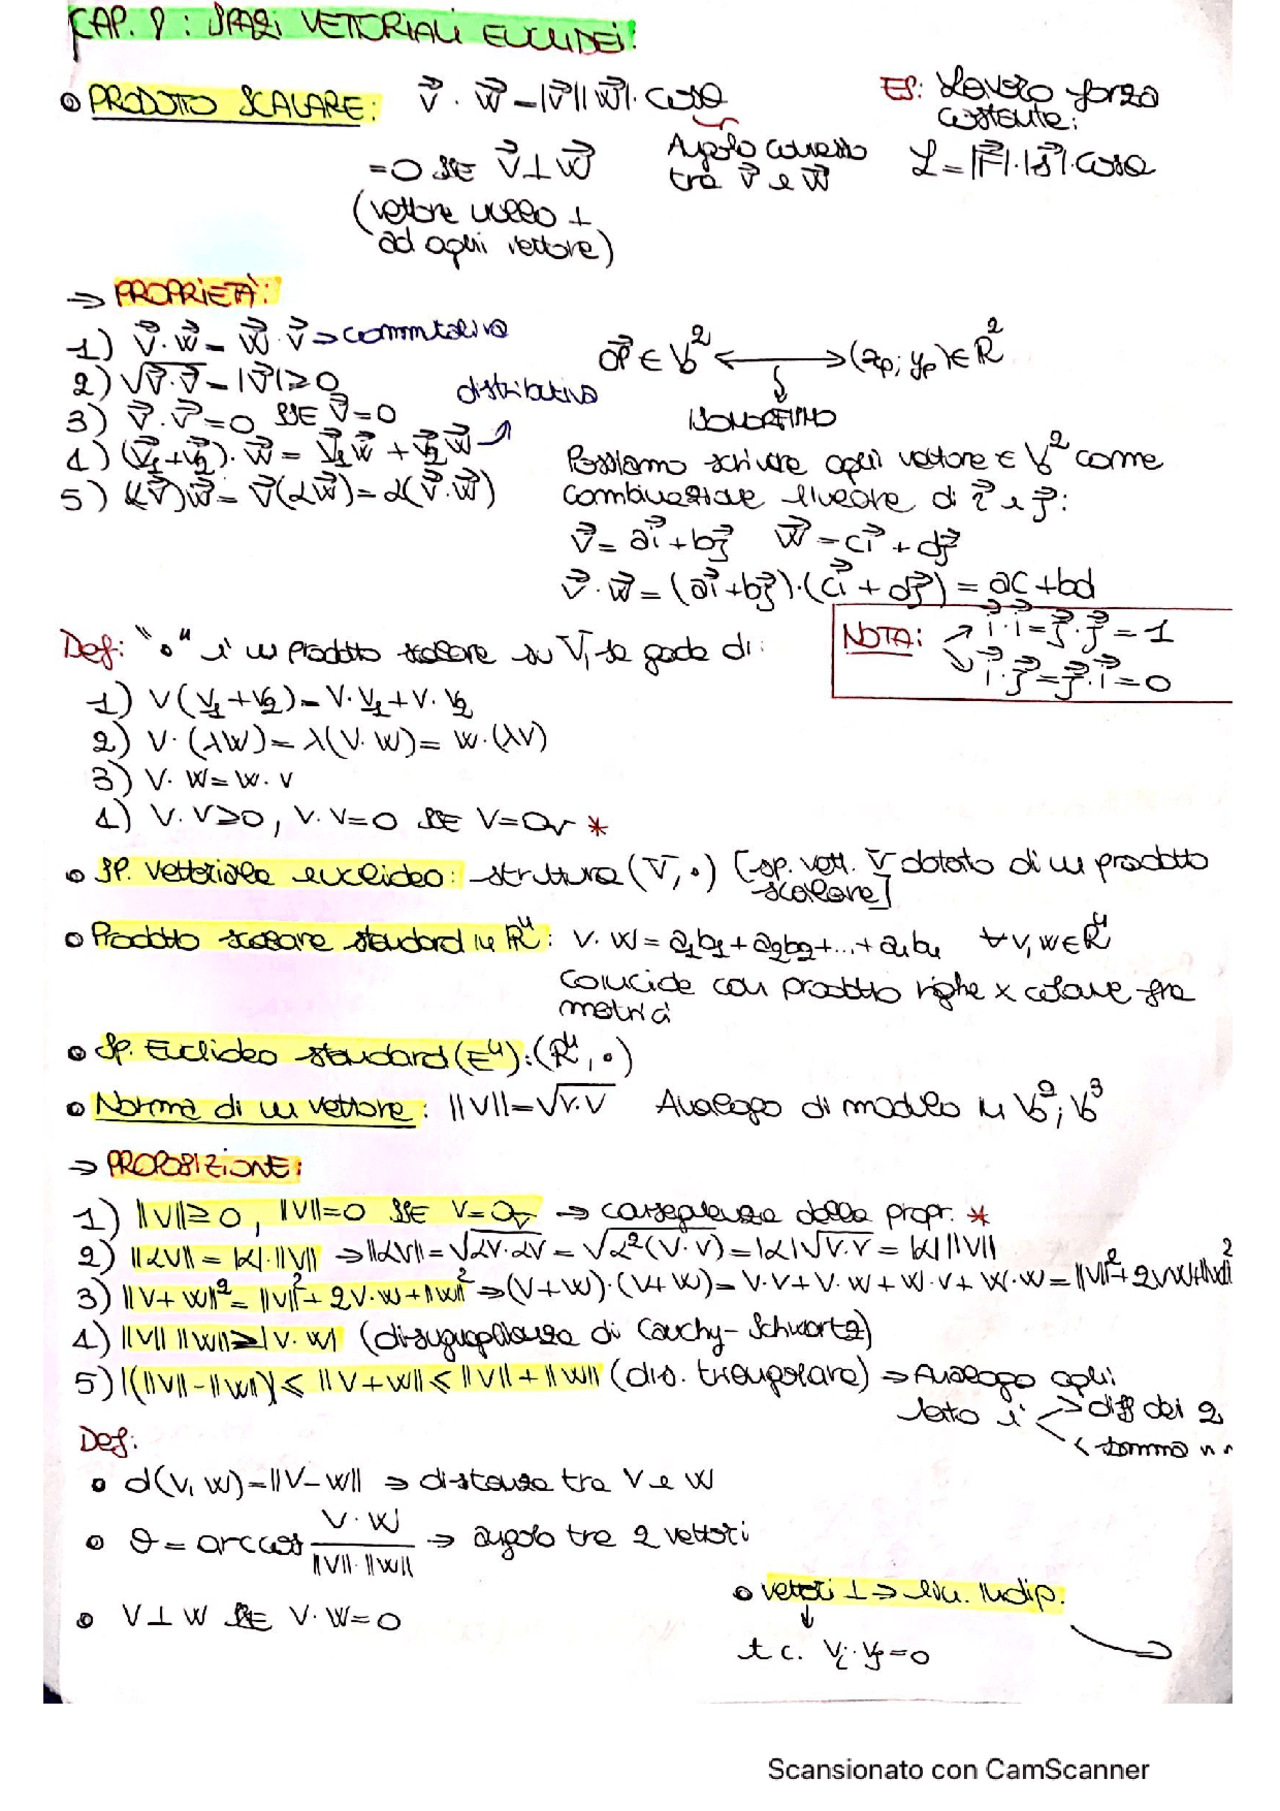 CAP. 8: SPAZI VETTORIALI EUCLIDEI:
• PRODOTTO SCALARE: v⃗ · w⃗ = |v⃗||w⃗|·cosθ
ES: Lavoro forza costante:
=0 SSE v⃗ ⊥ w⃗
Angolo convesso tra v⃗ e w⃗
L = |F⃗|·|s⃗|·cosθ
(vettore nullo ⊥
ad ogni vettore)
⇒ PROPRIETÀ:
1) v⃗·w⃗ = w⃗·v⃗ ⇒ commutativa
2) √v⃗·v⃗ = |v⃗| ≥ 0
3) v⃗·v⃗ = 0 SSE v⃗ = 0
distributiva
4) (v⃗₁+v⃗₂)·w⃗ = v⃗₁w⃗ + v⃗₂w⃗
5) (αv⃗)w⃗ = v⃗(αw⃗) = α(v⃗·w⃗)
OP⃗ ∈ V₀² ⟷ (xp; yp) ∈ R²
ISOMORFISMO
Possiamo scrivere ogni vettore ∈ V₀² come
combinazione lineare di i⃗ e j⃗:
v⃗ = ai⃗ + bj⃗ w⃗ = ci⃗ + dj⃗
v⃗·w⃗ = (ai⃗+bj⃗)·(ci⃗+dj⃗) = ac+bd
NOTA: i⃗·i⃗ = j⃗·j⃗ = 1
i⃗·j⃗ = j⃗·i⃗ = 0
Def: "•" è un prodotto scalare su V, se gode di:
1) V(V₁+V₂) = V·V₁+V·V₂
2) V·(λW) = λ(V·W) = W·(λV)
3) V·W = W·V
4) V·V≥0, V·V=0 SSE V=0v *
• SP. Vettoriale euclideo: struttura (V, •) [sp. vett. V dotato di un prodotto
scalare]
• Prodotto scalare standard in Rⁿ: V·W = a₁b₁+a₂b₂+...+aₙbₙ ∀ v, w ∈ Rⁿ
Coincide con prodotto righe x colonne fra
matrici
• Sp. Euclideo standard (Eⁿ): (Rⁿ, •)
• Norma di un vettore: ||V|| = √V·V Analogo di modulo in V₀²; V₀³
⇒ PROPOSIZIONE:
1) ||V|| ≥ 0, ||V||=0 SSE V=0v ⇒ conseguenza della propr. *
2) ||αV|| = |α|·||V|| ⇒ ||αV|| = √αV·αV = √α²(V·V) = |α|√V·V = |α| ||V||
3) ||V+W||² = ||V||²+2V·W+||W||² ⇒ (V+W)·(V+W) = V·V+V·W+W·V+W·W = ||V||²+2VW+||W||²
4) ||V|| ||W|| ≥ |V·W| (disuguaglianza di Cauchy-Schwartz)
5) |(||V||-||W||)| ≤ ||V+W|| ≤ ||V||+||W|| (dis. triangolare) ⇒ Analogo ogni
lato è > diff dei 2
< somma
Def:
• d(V, W) = ||V-W|| ⇒ distanza tra V e W
• θ = arccos V·W / ||V||·||W|| ⇒ angolo tra 2 vettori
• vettori ⊥ ⇒ lin. Indip.
• V ⊥ W SSE V·W=0
t.c. Vᵢ·Vⱼ=0
Scansionato con CamScanner